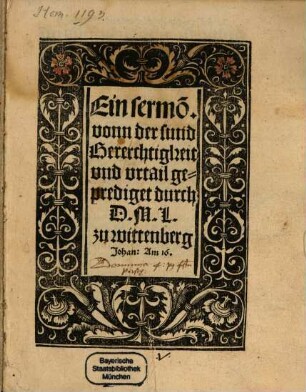 Hom. 1197.
Ein sermō.
vonn der sund
Gerechtigkeit
vnd vrtail ge⸗
prediget durch
D. M. L.
zu wittenberg
Johan: Am 16.
Dominica 4. p9
Bayerische
Staatsbibliothek
München